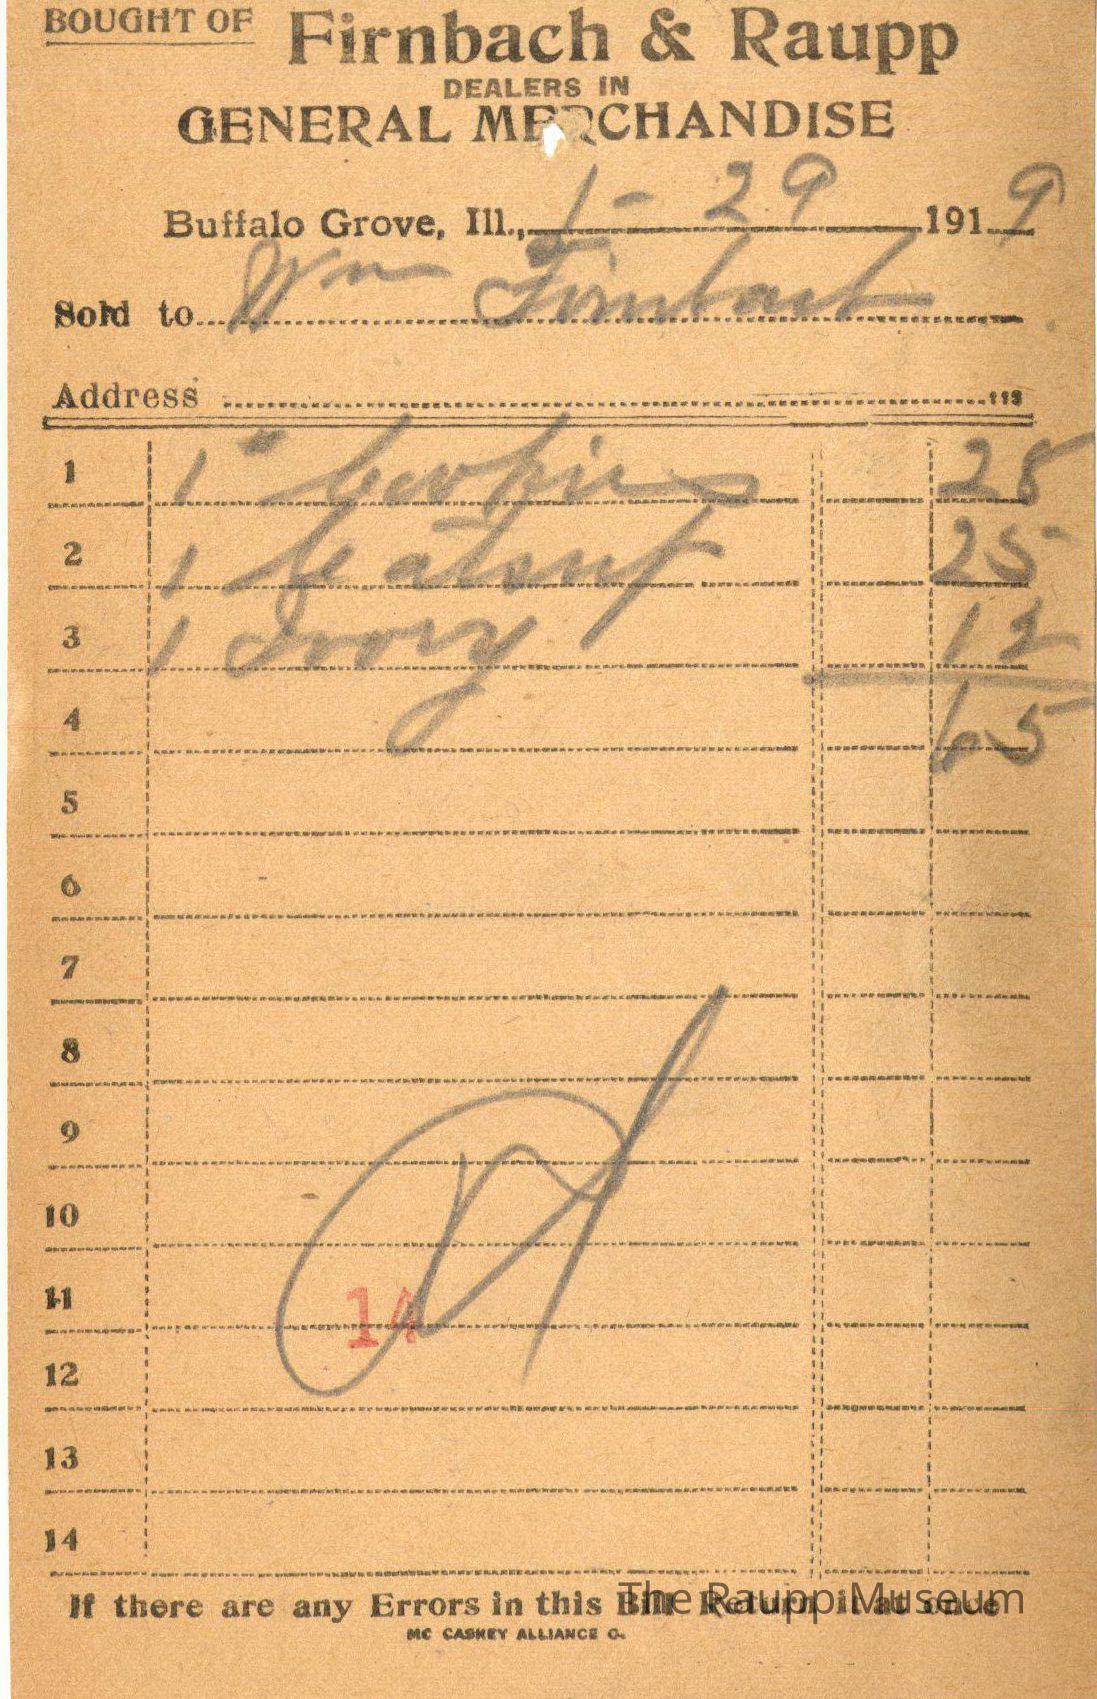 BOUGHT OF Firnbach & Raupp
DEALERS IN
GENERAL MERCHANDISE
Buffalo Grove, Ill., 1-29 1919
Sold to Wm Firnbach
Address
1 1# Cookies 28
2 1 Catsup 25
3 1 Ivory 12
4 65
5
6
7
8
9
10
11
14
12
13
14
If there are any Errors in this Bill Return it at once
The Raupp Museum
MC CASKEY ALLIANCE O.